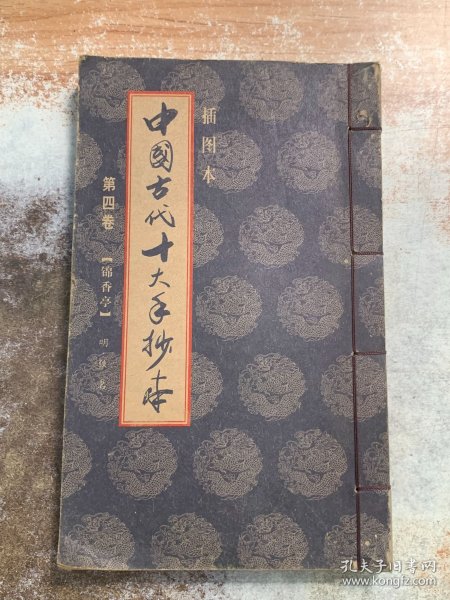 插图本
中國古代十大手抄本
第四卷
【锦香亭】
明
孔夫子旧书网
www.kongfz.com